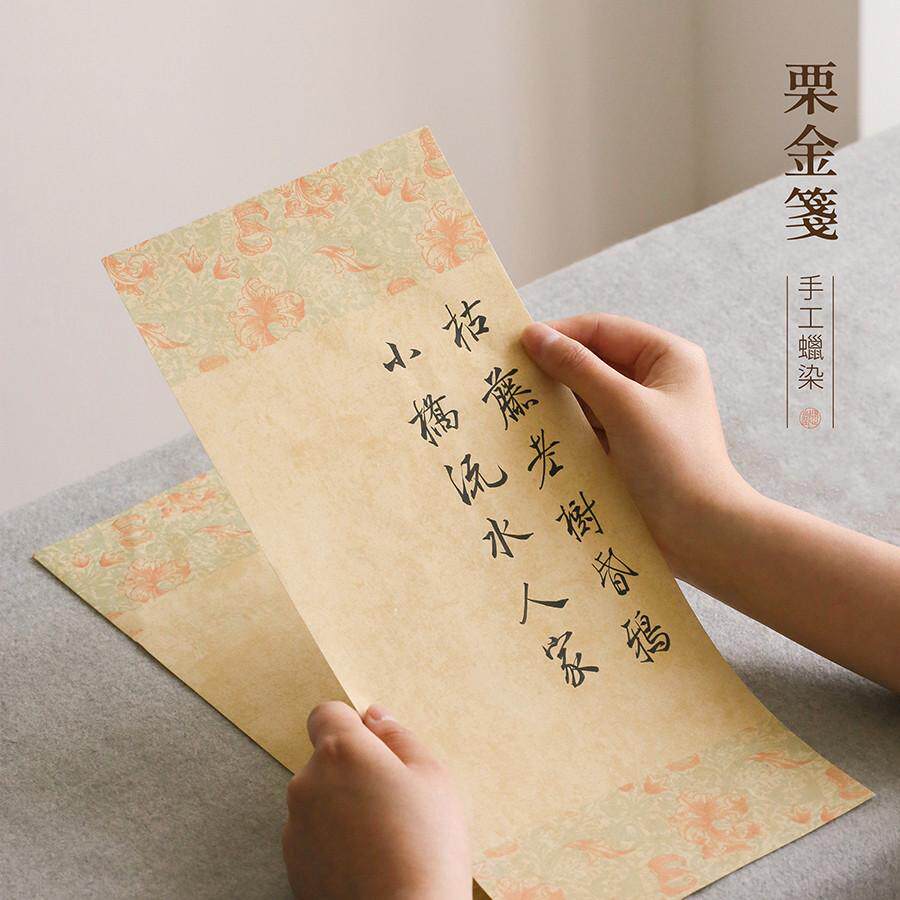 栗金箋
手工蠟染
枯藤老樹昏鴉
小橋流水人家